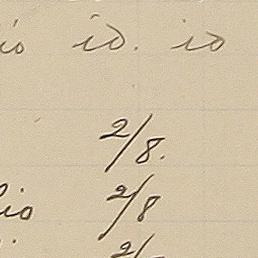 io id. io
2/8.
lio 2/8
2/